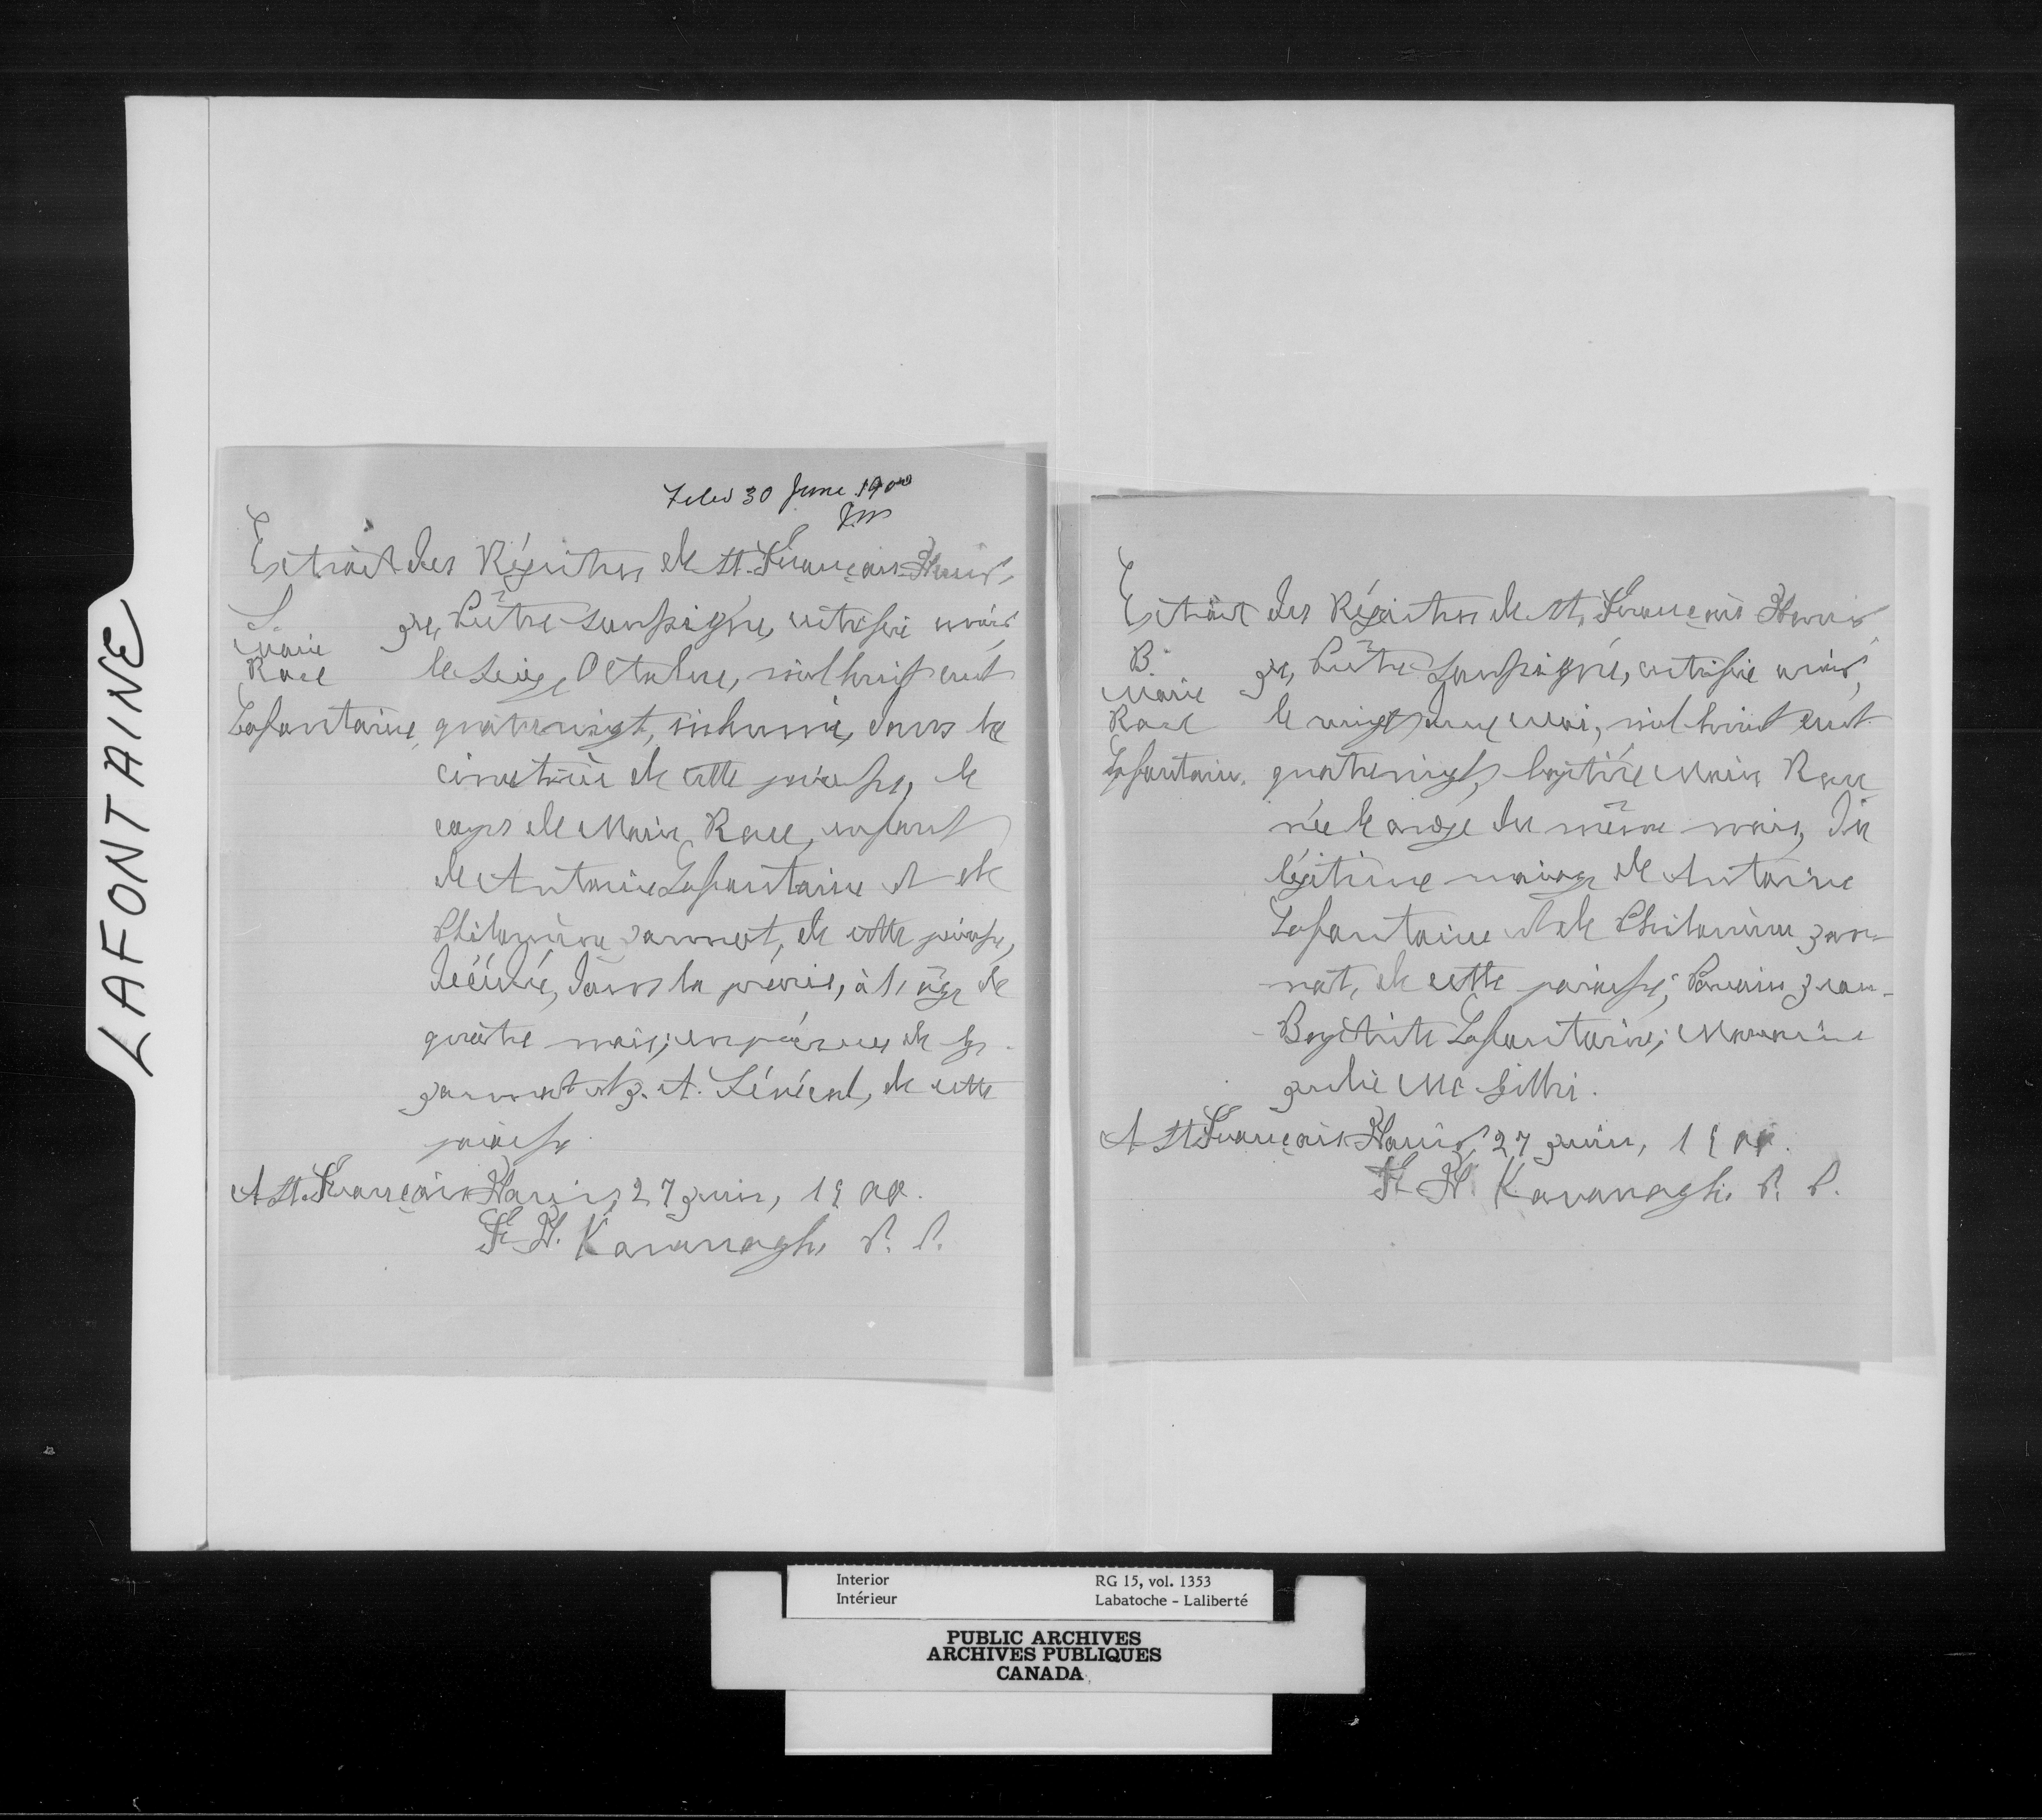 LAFONTAINE
Filed 30 June 1900
Extrait des Régistres de St. François-Xavier,
S. Je, Prêtre soussigné, certifie avoir,
Marie
Rose le seize, Octobre, mil huit cent
Lafontaine, quatrevingt, inhumé, dans le
cimetière de cette paroisse, le
corps de Marie Rose, enfant
de Antoine Lafontaine et de
Philomène Jannot, de cette paroisse,
décédée, dans la prairie, à l'âge de
quatre mois; en présence de
Jannot et J. A. Sénécal, de cette
paroisse.
A St. François-Xavier, 27 Juin, 1900.
F. X. Kavanagh, P. P.
Extrait des Régistres de St. François Xavier
B. Je, Prêtre soussigné, certifie avoir,
Marie
Rose le vingt mai, mil huit cent
Lafontaine. quatrevingt, baptisé Marie Rose
née le onze du même mois, du
légitime mariage de Antoine
Lafontaine et de Philomène Jan-
not, de cette paroisse; Parrain Jean-
-Baptiste Lafontaine; Marraine
Julie McGillis.
A St François-Xavier, 27 Juin, 1900.
F. X. Kavanagh, P. P.
Interior RG 15, vol. 1353
Intérieur Labatoche - Laliberté
PUBLIC ARCHIVES
ARCHIVES PUBLIQUES
CANADA